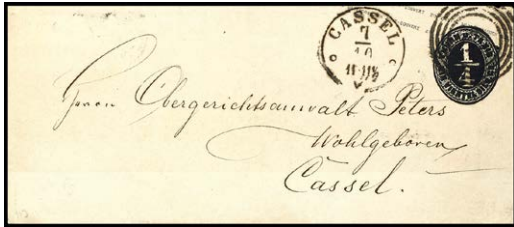 CASSEL
7
10
1
4
Herrn Obergerichtsanwalt Peters
Wohlgeboren
Cassel.